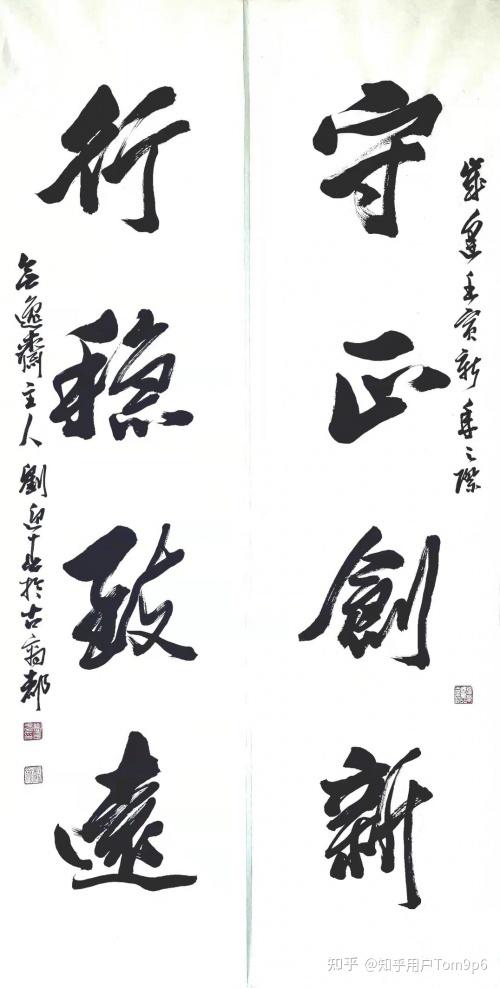 歲逢壬寅新年之際
守正創新
行穩致遠
逸齋主人劉迎於古商都
知乎 @知乎用户Tom9p6